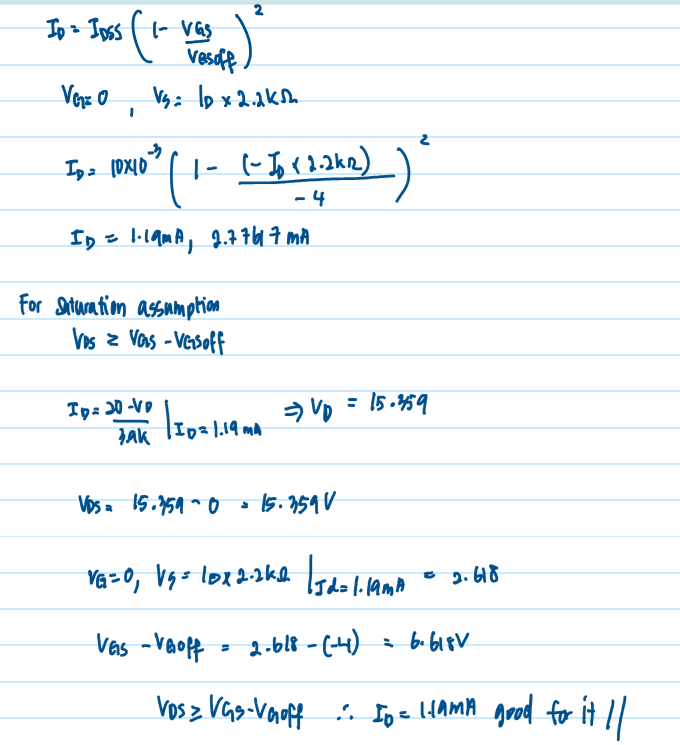 I_D = I_DSS ( 1 - V_GS / V_GSoff )^2
V_G = 0 , V_S = I_D x 2.2kΩ
I_D = 10x10^-3 ( 1 - (- I_D x 2.2kΩ) / -4 )^2
I_D = 1.19mA, 2.7767 mA
For Saturation assumption
V_DS ≥ V_GS - V_GSoff
I_D = 20 - V_D / 3.9K | I_D = 1.19 mA ⇒ V_D = 15.359
V_DS = 15.359 - 0 = 15.359 V
V_G = 0, V_S = I_D x 2.2kΩ | Id = 1.19mA = 2.618
V_GS - V_Goff = 2.618 - (-4) = 6.618V
V_DS ≥ V_GS - V_Goff ∴ I_D = 1.19mA good for it //